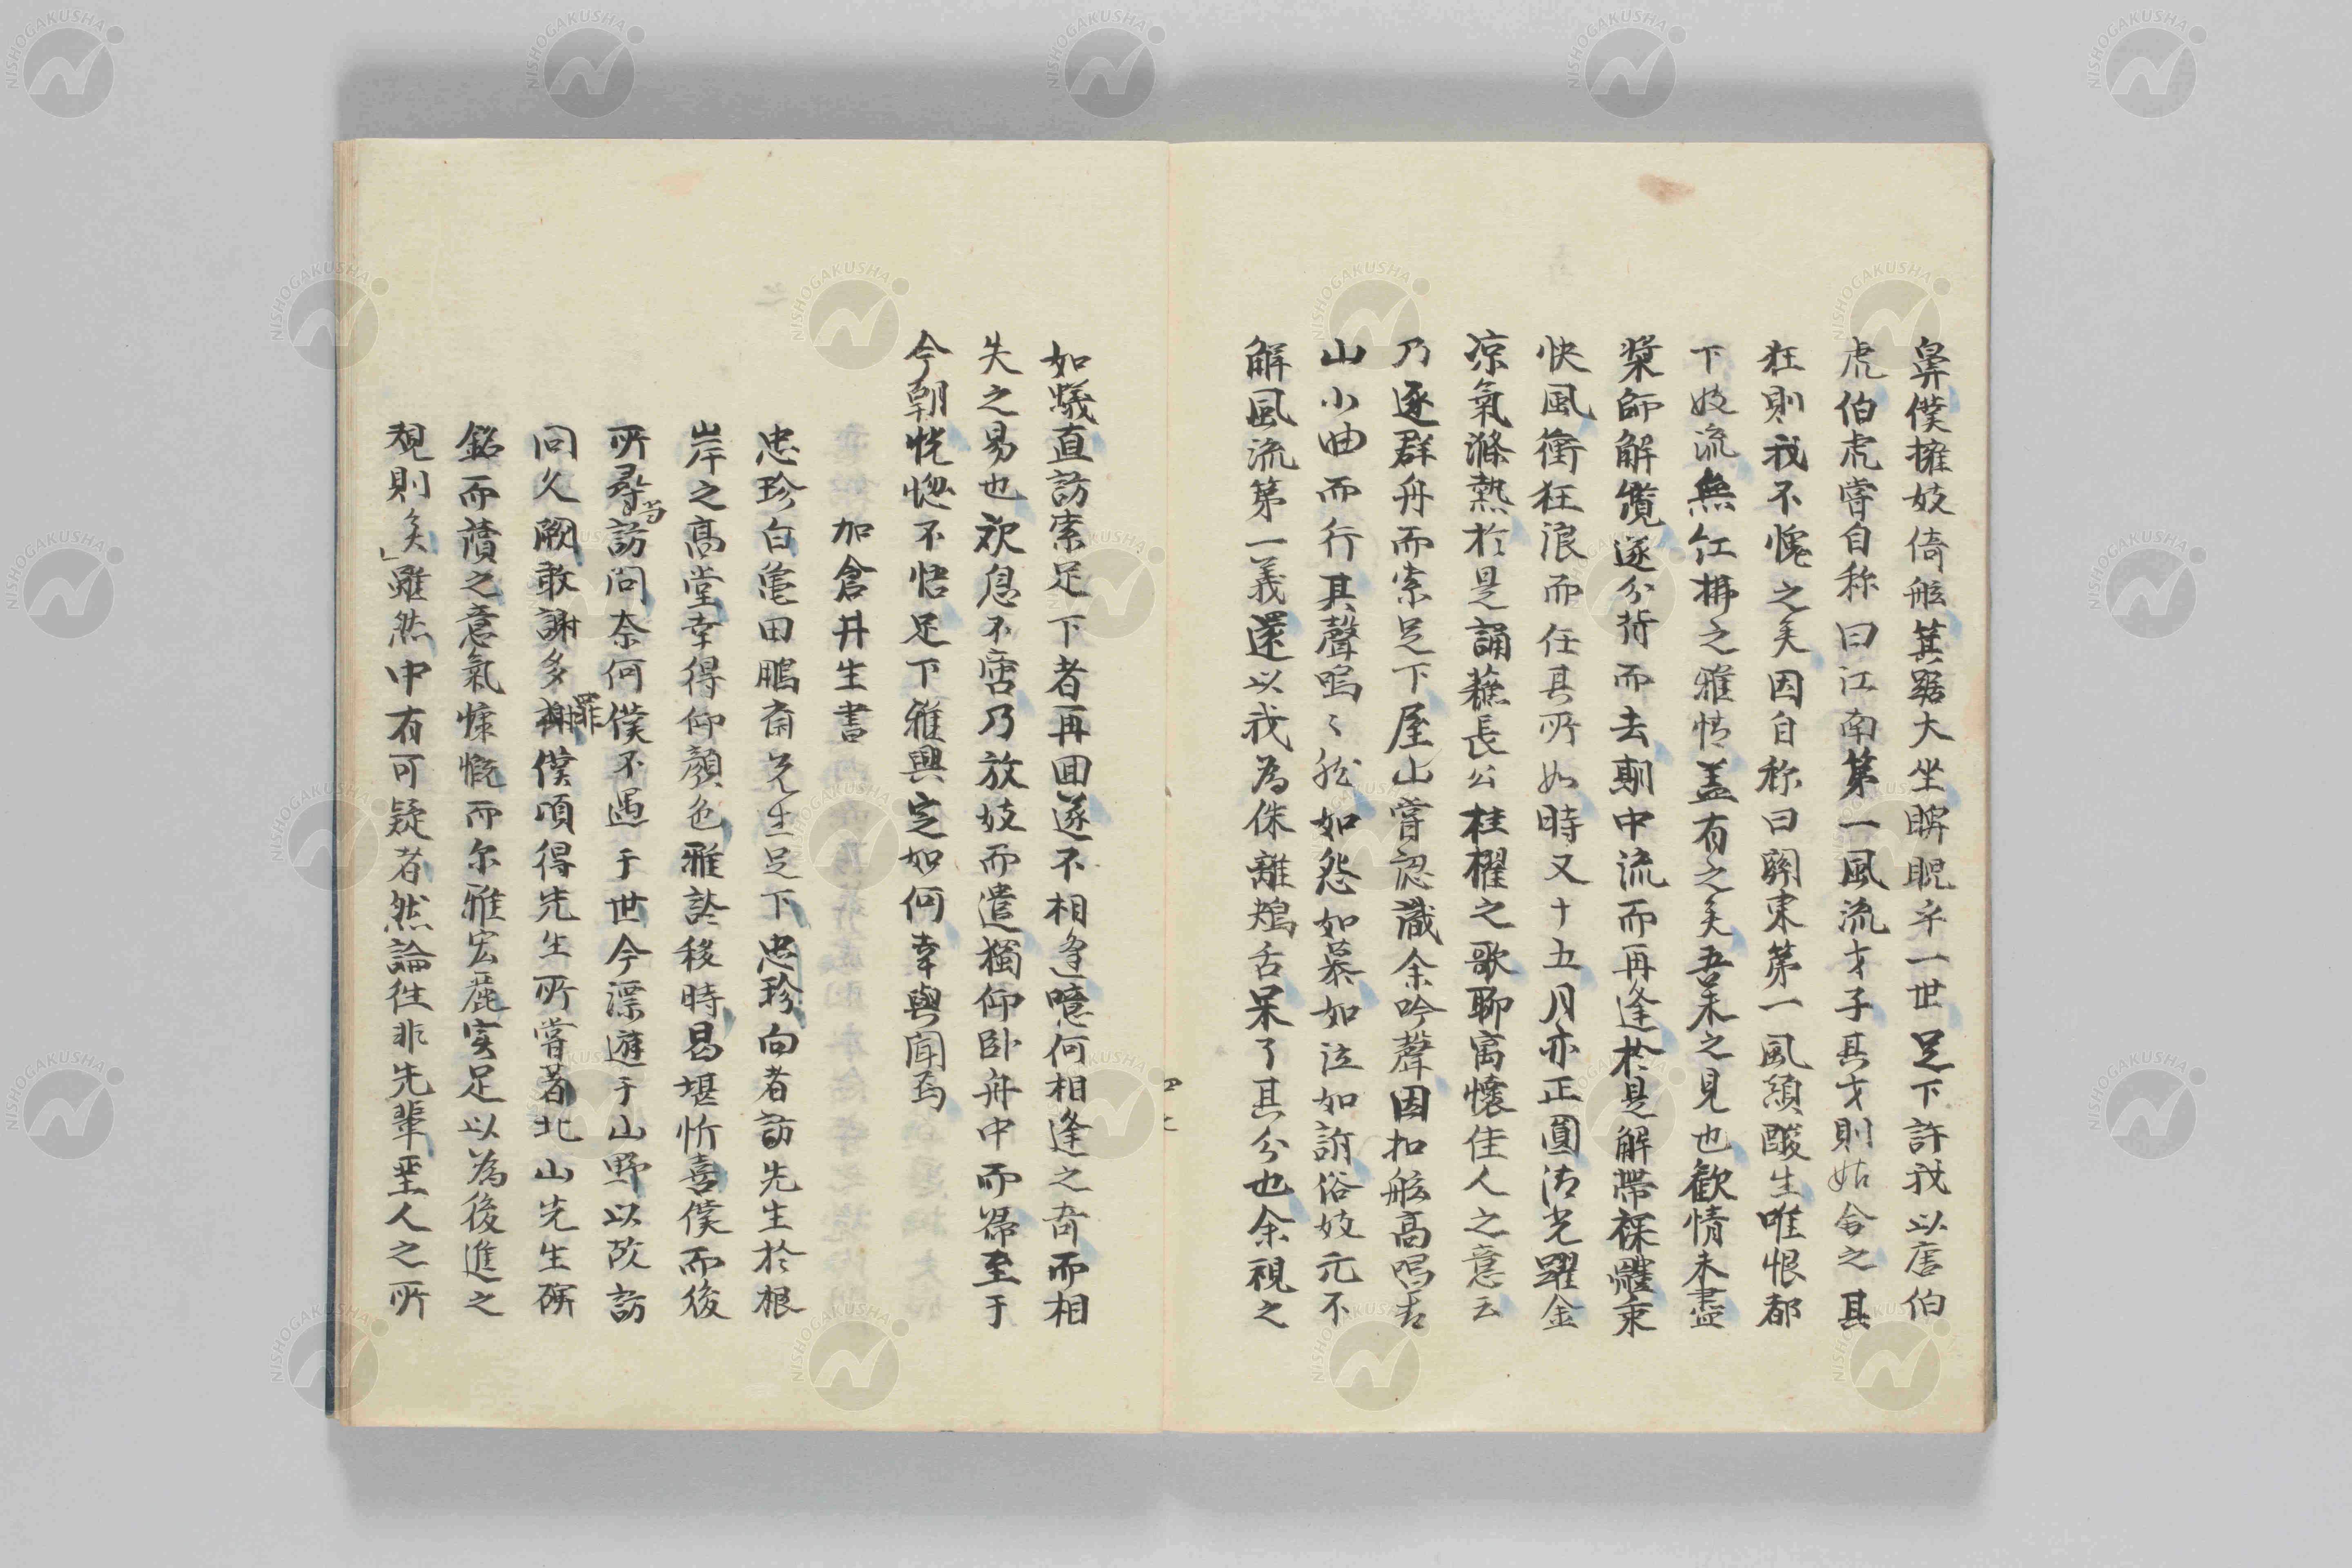 鼻僕擁妓倚舷箕踞大坐睥睨乎一世足下許我以唐伯
虎伯虎嘗自称曰江南第一風流才子其才則姑舎之其
狂則我不愧之矣因自称曰関東第一風顛酸生唯恨都
下妓流無紅拂之雅情盖有之矣吾未之見也歓情未盡
槳師解纜遂分背而去期中流而再逢於是解帯裸體乗
快風衝狂浪而任其所如時又十五月亦正圓清光躍金
凉氣滌熱於是誦蘓長公桂櫂之歌聊寓懐佳人之意云
乃逐群舟而索足下屋山嘗認識余吟聲因扣舷高唱吉
山小曲而行其聲嗚〻然如怨如慕如泣如訴俗妓元不
解風流第一義還以我為侏離鴃舌呆了其分也余視之
如蟻直訪索足下者再回遂不相逢噫何相逢之奇而相
失之易也歎息不啻乃放妓而遣獨仰卧舟中而帰至于
今朝恍惚不悟足下雅興定如何幸與聞焉
加倉井生書
忠珍白亀田鵬斎先生足下忠珍向者訪先生於根
岸之高堂幸得仰顔色雅談移時曷堪忻喜僕而後
所尋訪問奈何僕不遇于世今漂遊于山野以故訪
当
問久闕敢謝多謝僕頃得先生所嘗著北山先生硏
罪
銘而讀之意氣慷慨而尓雅宏麗実足以為後進之
規則矣」雖然中有可疑者然論徃非先輩至人之所
四七
NISHOGAKUSHA